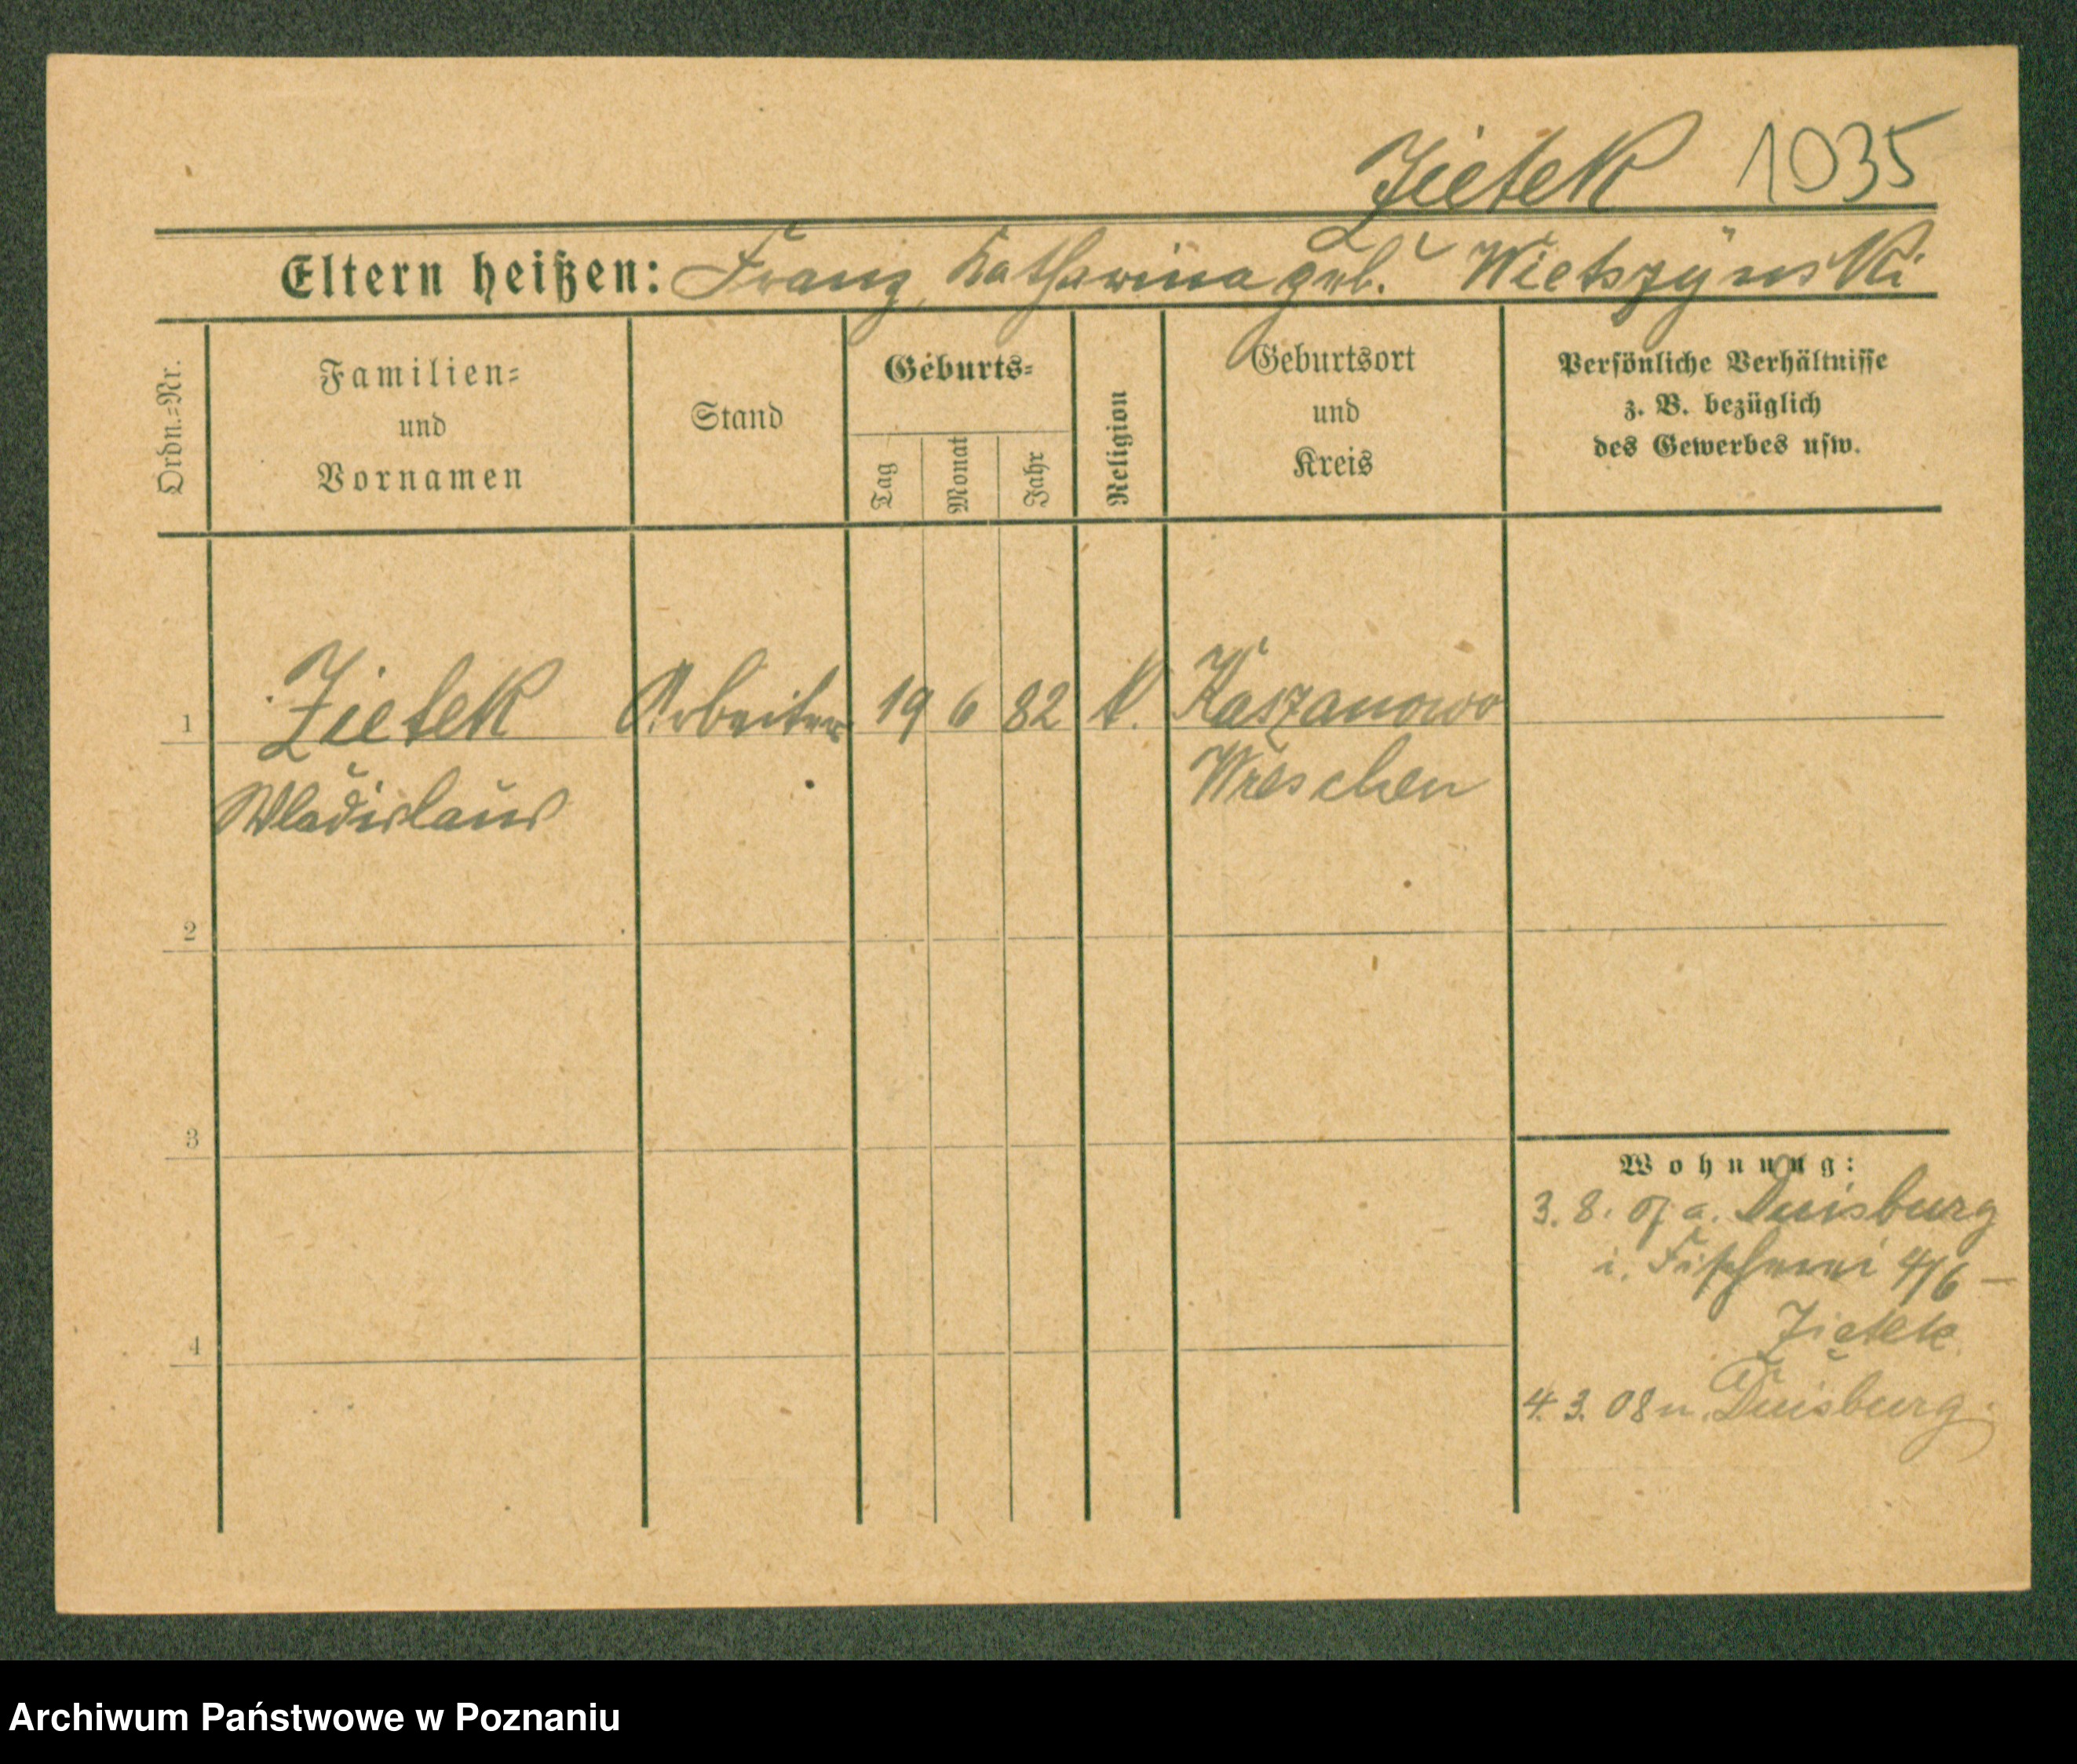 Zietek 1035
Eltern heißen: Franz, Katharina geb. Wietszynski
Ordn.=Nr.
Familien=
und
Vornamen
Stand
Geburts=
Tag
Monat
Jahr
Religion
Geburtsort
und
Kreis
Persönliche Verhältnisse
z. B. bezüglich
des Gewerbes usw.
1 Zietek Arbeiter 19 6 82 k. Kaszanowo
Wladislaus Wreschen
2
3
4
Wohnung:
3. 8. 07 a. Duisburg
i. Fischerei 4/6 –
Zietek
4. 3. 08 n. Duisburg.
Archiwum Państwowe w Poznaniu